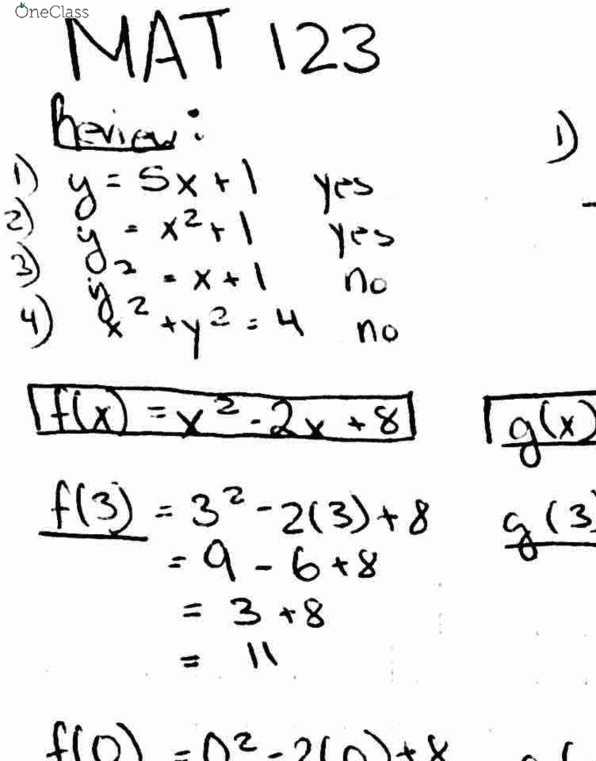 OneClass
MAT 123
Review:
1) y = 5x + 1 yes
2) y = x² + 1 yes
3) y² = x + 1 no
4) x² + y² = 4 no
1)
f(x) = x² - 2x + 8
g(x)
f(3) = 3² - 2(3) + 8
g(3)
= 9 - 6 + 8
= 3 + 8
= 11
f(0) = 0² - 2(0) + 8